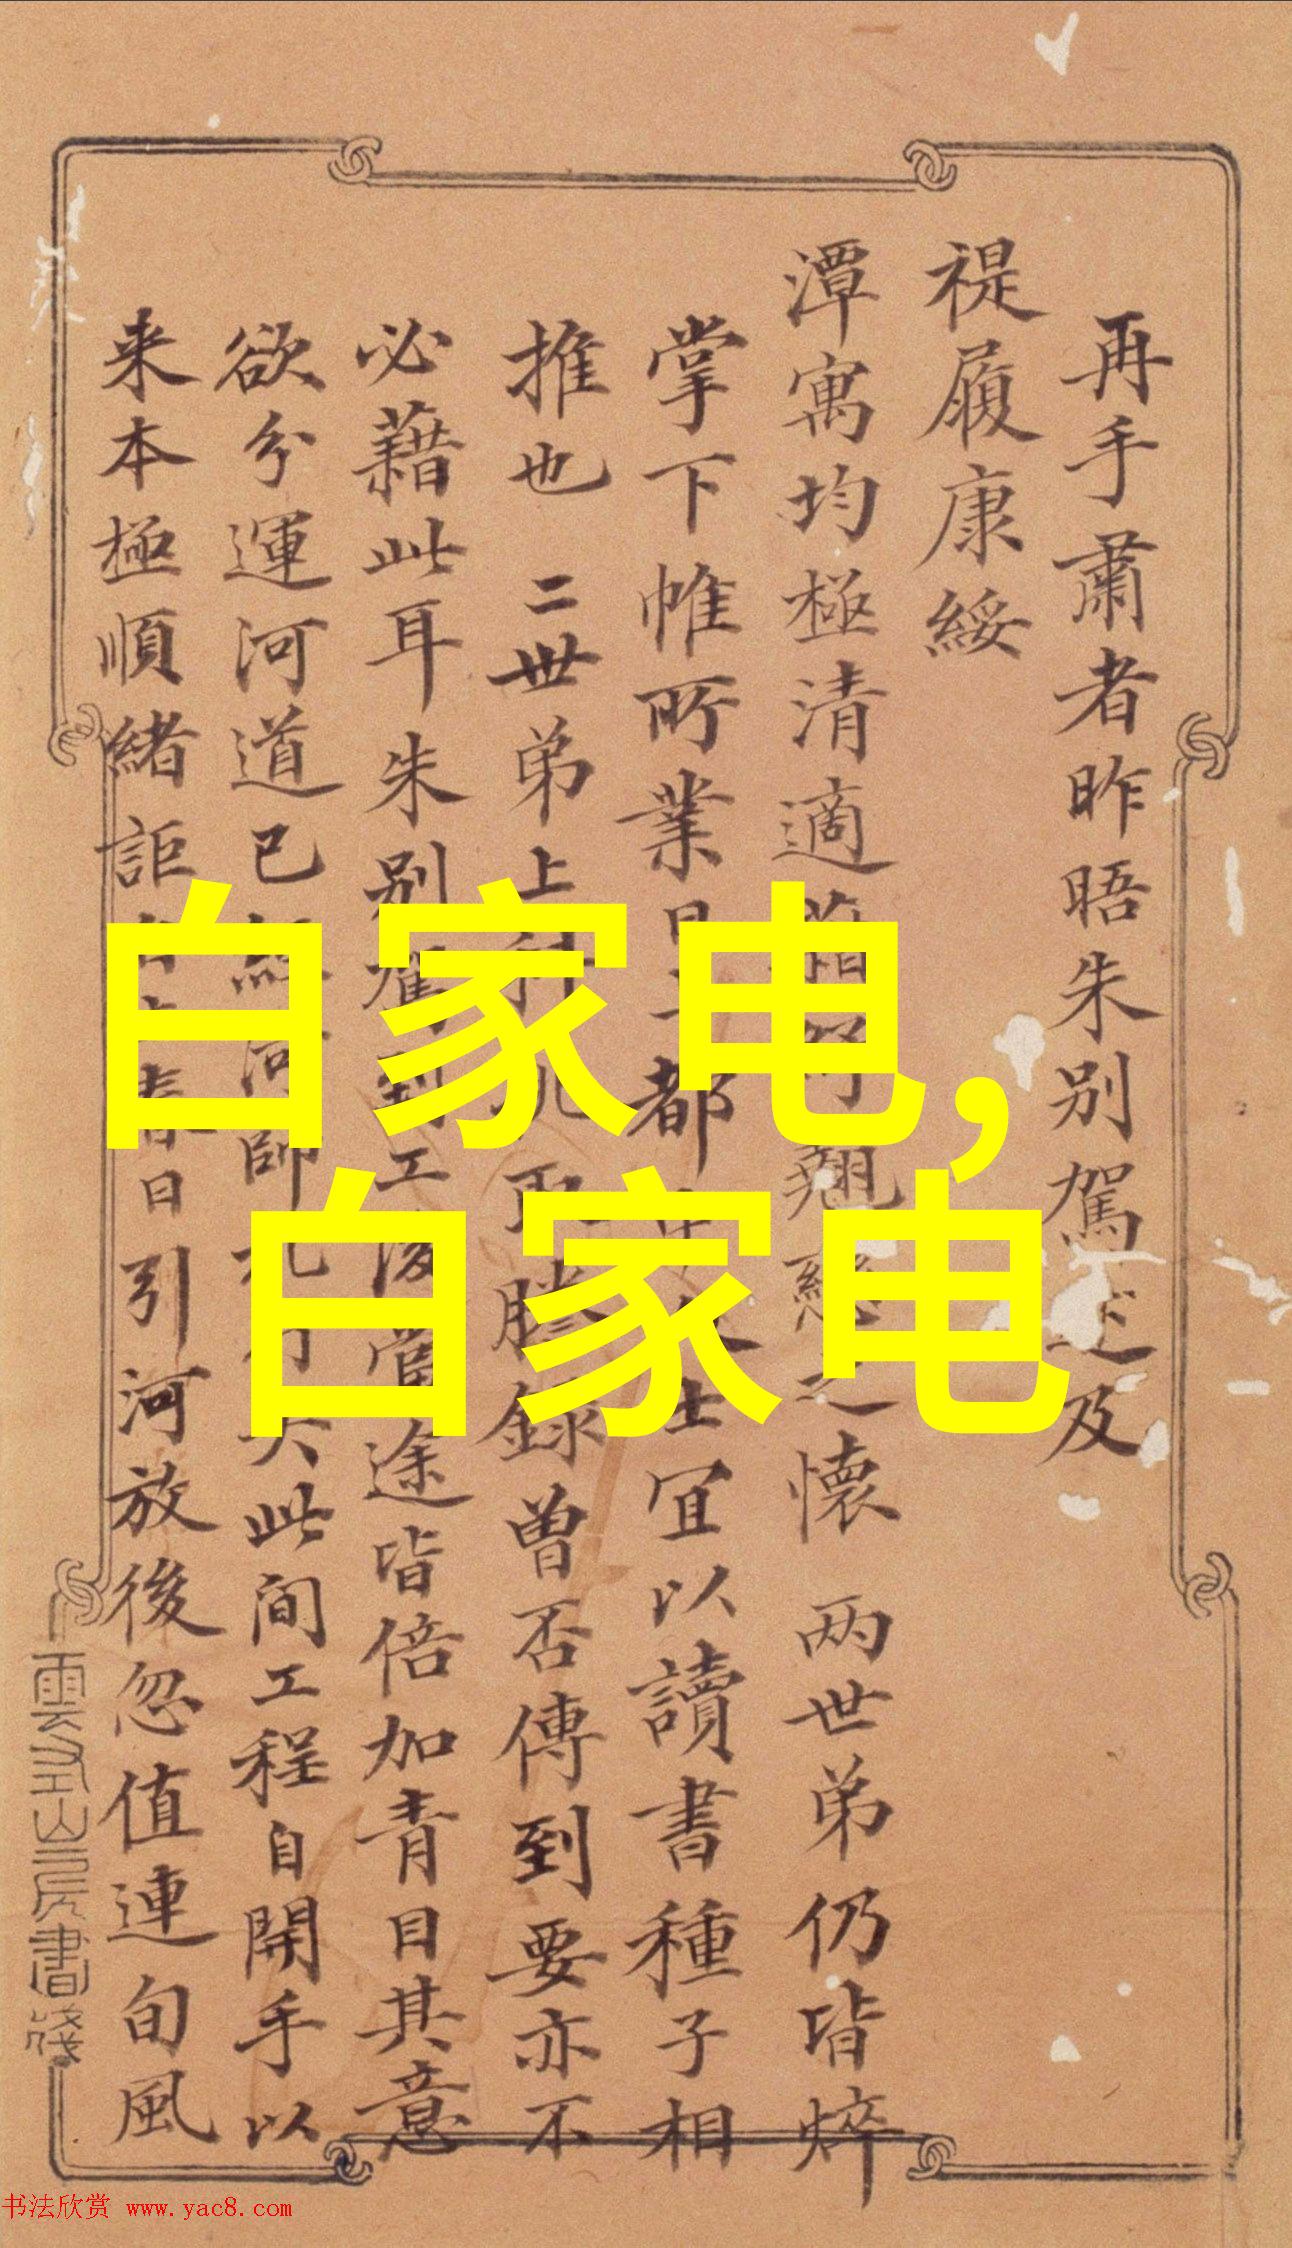 再手肅者昨晤朱别駕述及
禔履康綏
潭寓均極清適 懷 两世弟仍皆焠
掌下帷所業日 都 士宜以讀書種子相
推也 二世弟上 謄録曾否傳到要亦不
必藉此耳朱别駕到工後當途皆倍加青目其意
欲分運河道已 河帥 此间工程自開手以
来本極順緒詎 春日引河放後忽值連旬風
白家电,
白家电
書箋
书法欣赏 www.yac8.com